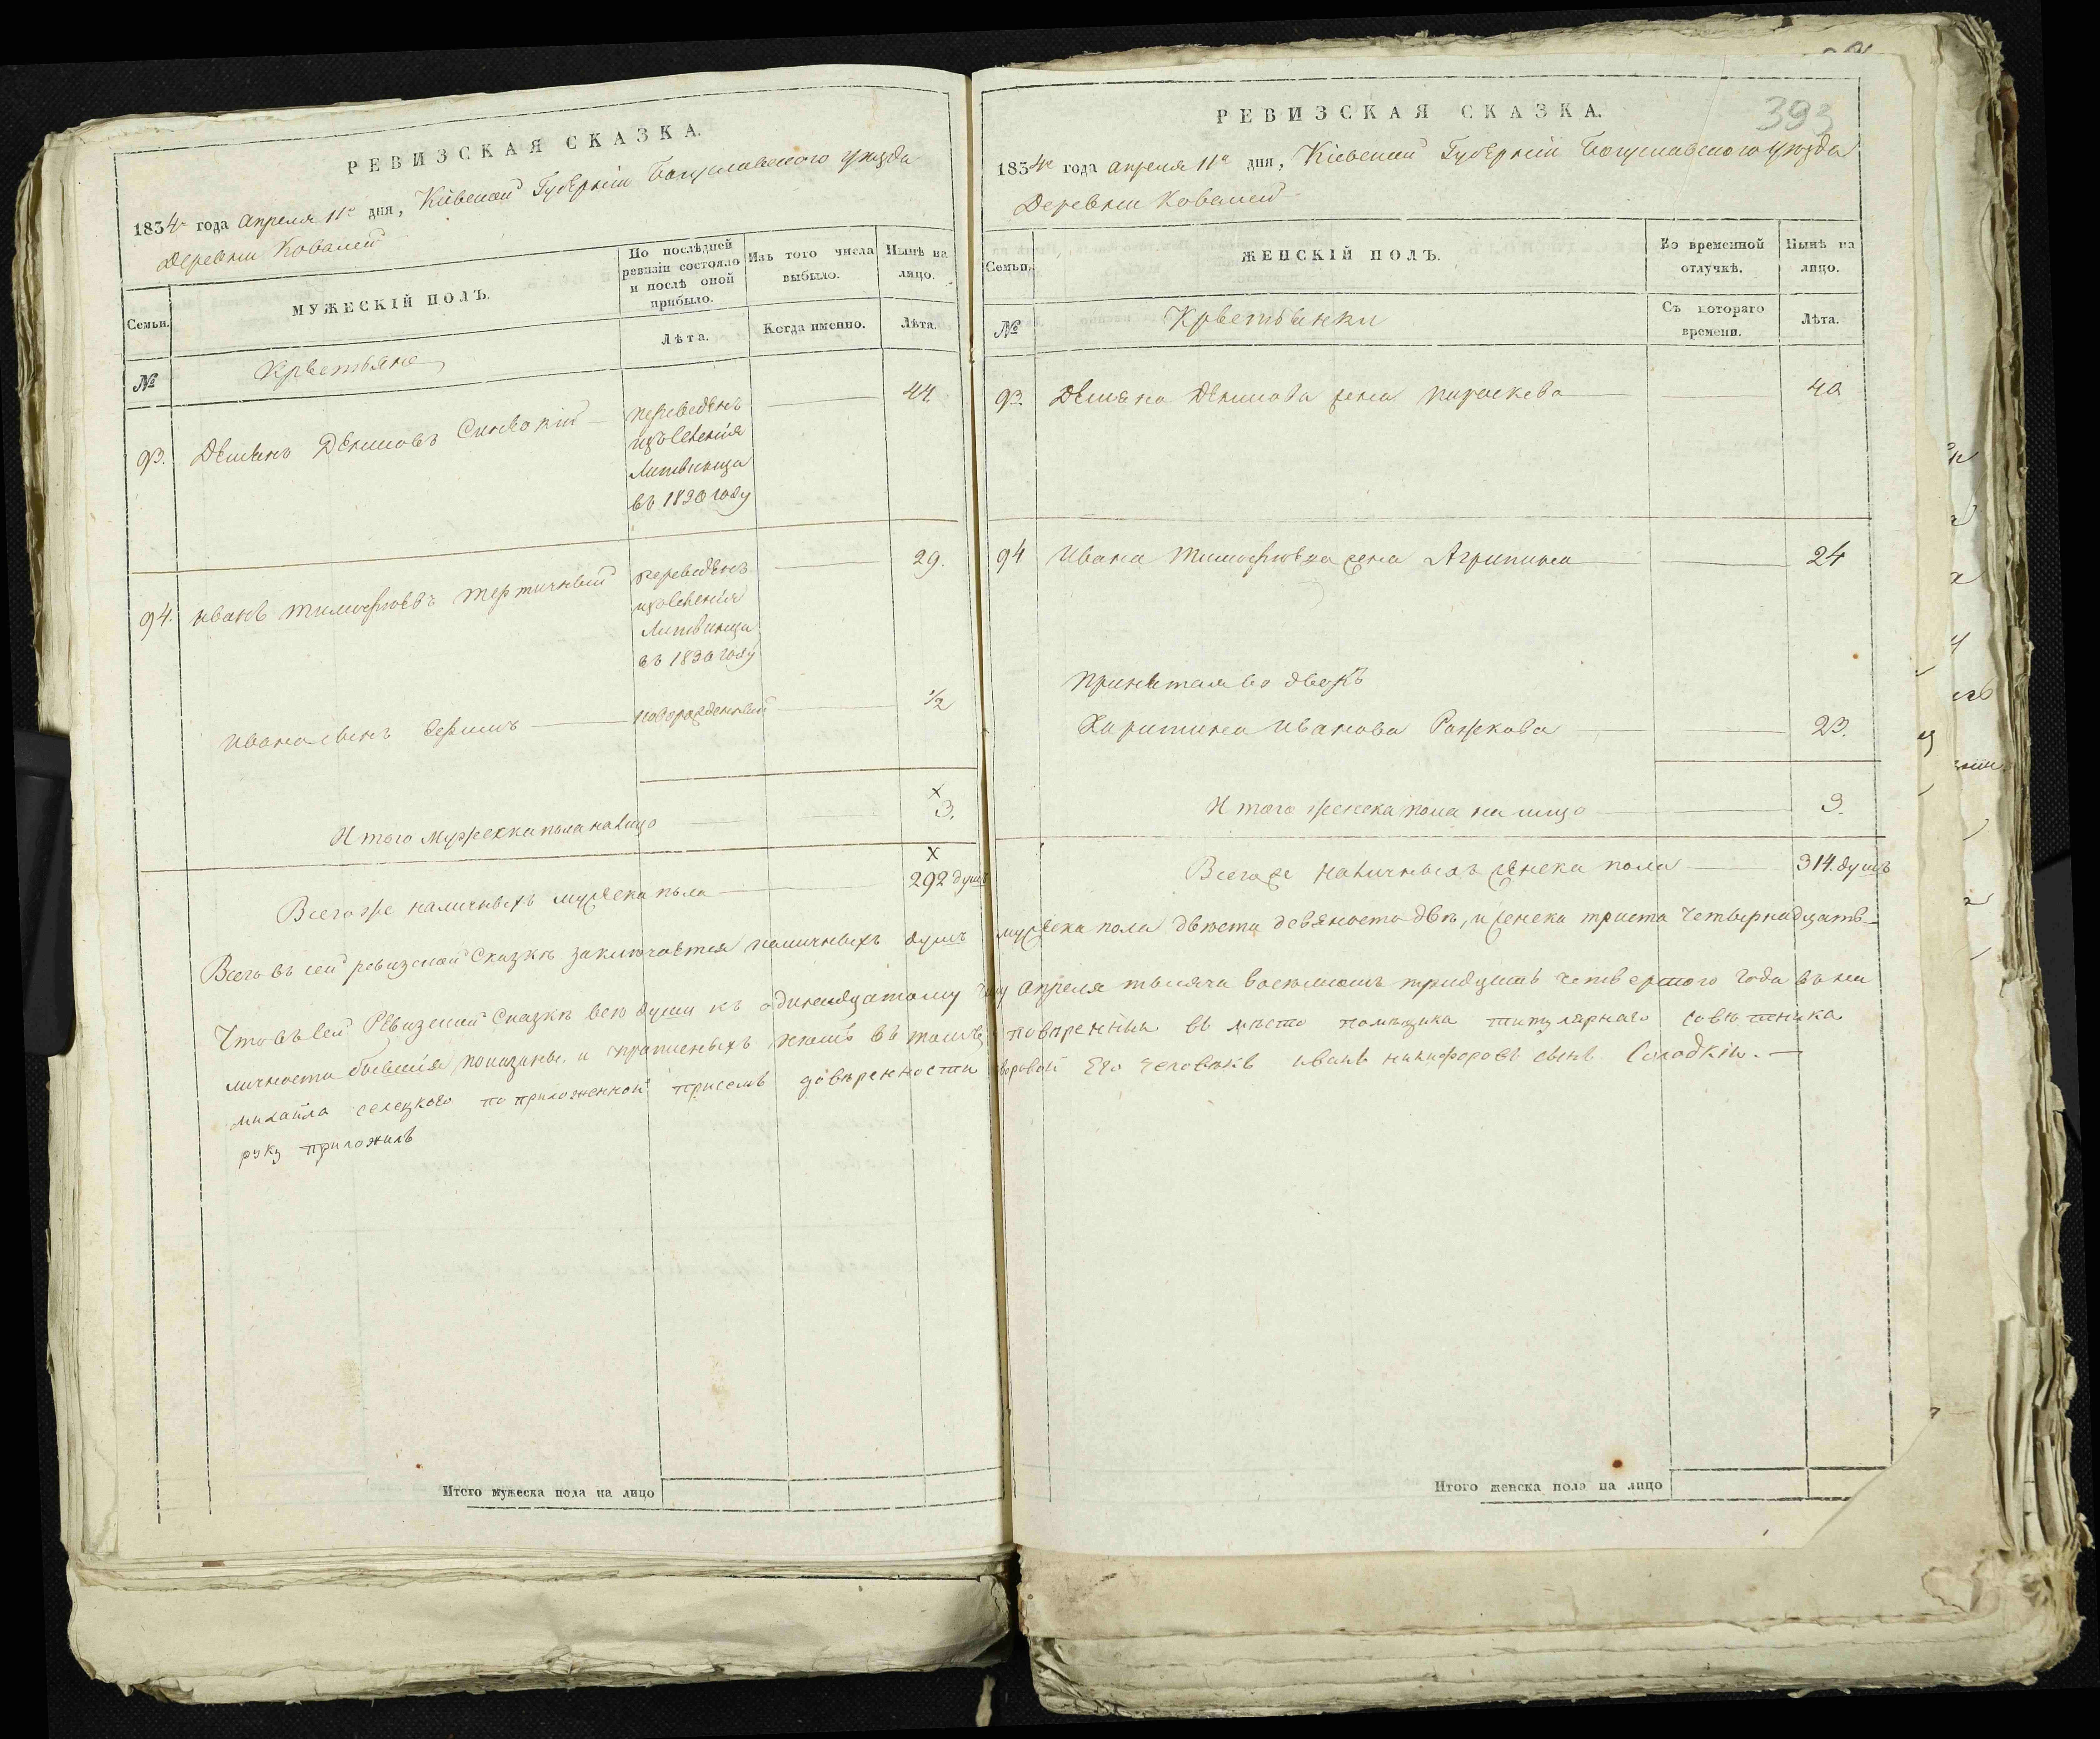 РЕВИЗСКАЯ СКАЗКА.
1834го года Апреля 11го дня, Кіевской Губерніи Богуславского уезда
Деревни Ковалей
Семьи.
МУЖЕСКІЙ ПОЛЪ.
По послѣдней ревизіи состояло и послѣ оной прибыло.
Изъ того числа выбыло.
Нынѣ на лицо.
Лѣта.
Когда именно.
Лѣта.
№
Крестьяне
93. Демянъ Денисовъ
переведенъ
изъ селенія
Литвинца
въ 1830 году
44.
94. Иванъ Тимофѣевъ Тертичный
переведенъ
изъ селенія
Литвинца
въ 1830 году
29.
Ивана сынъ
новорожденный
1/2
Итого мужеска пола на лицо
3.
Всего же наличныхъ мужеска пола
292 душъ
РЕВИЗСКАЯ СКАЗКА.
393
1834го года апреля 11го дня, Кіевской Губерніи Богуславского уезда
Деревни Ковалей
Семьи.
ЖЕНСКІЙ ПОЛЪ.
Во временной отлучкѣ.
Нынѣ на лицо.
№
Крестьянки
Съ котораго времени.
Лѣта.
93. Демяна Денисова жена Параскева 40
94 Ивана Тимофѣева жена Агрипина 24
Принятая во дворъ
Харитина Иванова Рожкова 23.
Итого женска пола на лицо 3.
Всего же наличныхъ женска пола 314. душъ
Всего въ сей ревизской Сказкѣ заключается наличныхъ душъ мужеска пола двѣста девяносто двѣ, и женска триста четырнадцать
Что въ сей Ревизской Сказкѣ всѣ души къ одинадцатому числу Апреля тысяча восемсотъ тридцать четвертого года въ на
личности бывшія показаны, и прописныхъ нѣтъ въ томъ повѣренный въ мѣсто помѣщика титулярнаго совѣтника
михаила селецкого по приложенной присемъ довѣренности дворовой его человѣкъ иванъ никифоровъ сынъ Солодкій.
руку приложилъ
Итого мужеска пола на лицо
Итого женска пола на лицо